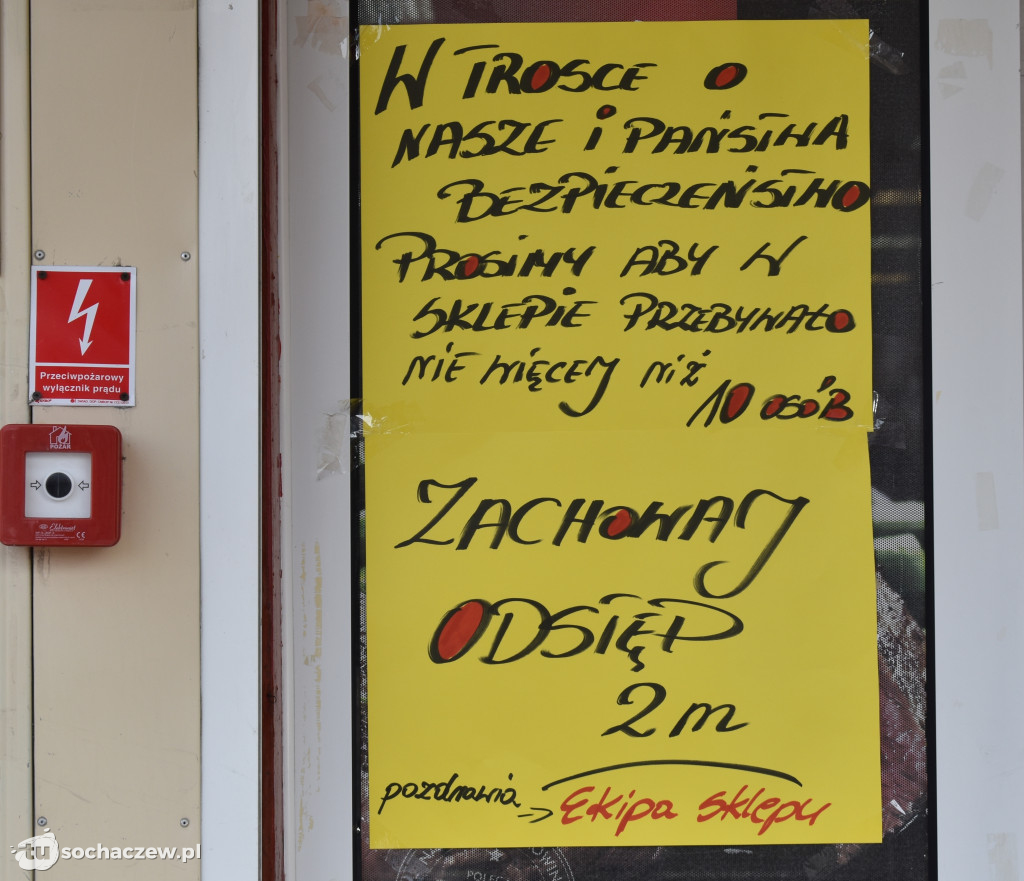 W TROSCE O
NASZE i PAŃSTWA
BEZPIECZEŃSTWO
PROSIMY ABY W
SKLEPIE PRZEBYWAŁO
NIE WIĘCEJ NIŻ
10 OSÓB
ZACHOWAJ
ODSTĘP
2 m
pozdrawia -> Ekipa sklepu
Przeciwpożarowy
wyłącznik prądu
POŻAR
CE
tu sochaczew.pl